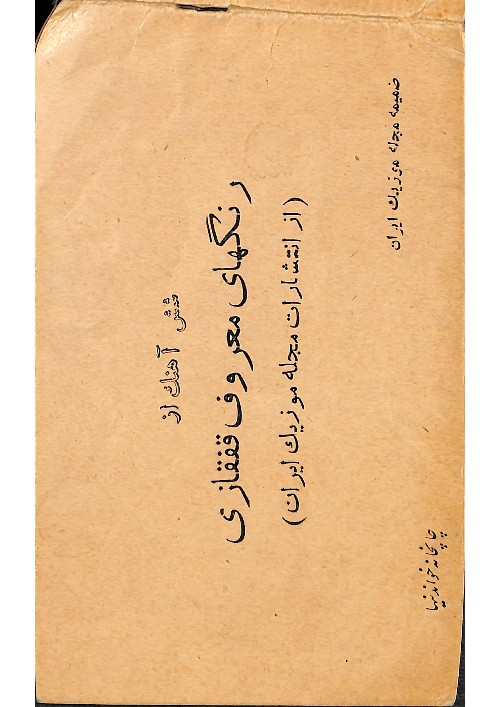 شش آهنگ از
رنگهای معروف قفقازی
(از انتشارات مجله موزیک ایران)
ضمیمه مجله موزیک ایران
چاپخانه خواندنیها